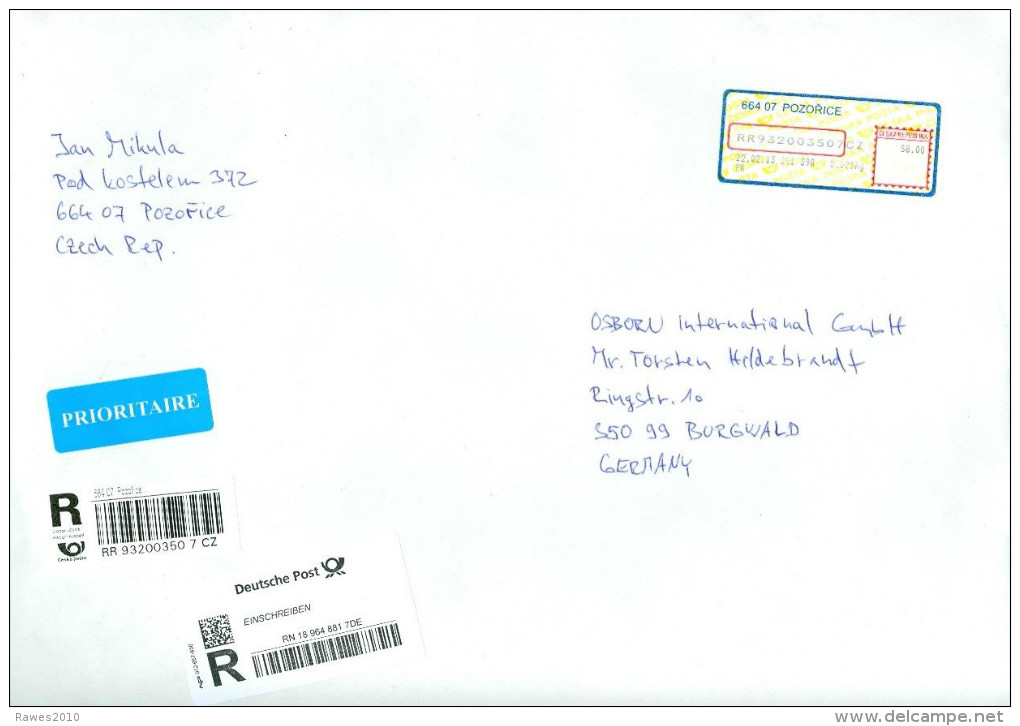 Jan Mikula
Pod kostelem 372
664 07 Pozořice
Czech Rep.
664 07 POZOŘICE
RR932003507CZ
58.00
22.02.13
PR
OSBORN International GmbH
Mr. Torsten Hildebrandt
Ringstr. 10
350 99 BURGWALD
GERMANY
PRIORITAIRE
R
664 07 Pozořice
RR 93200350 7 CZ
Deutsche Post
EINSCHREIBEN
RN 18 964 881 7DE
R
Rawes2010
www.delcampe.net